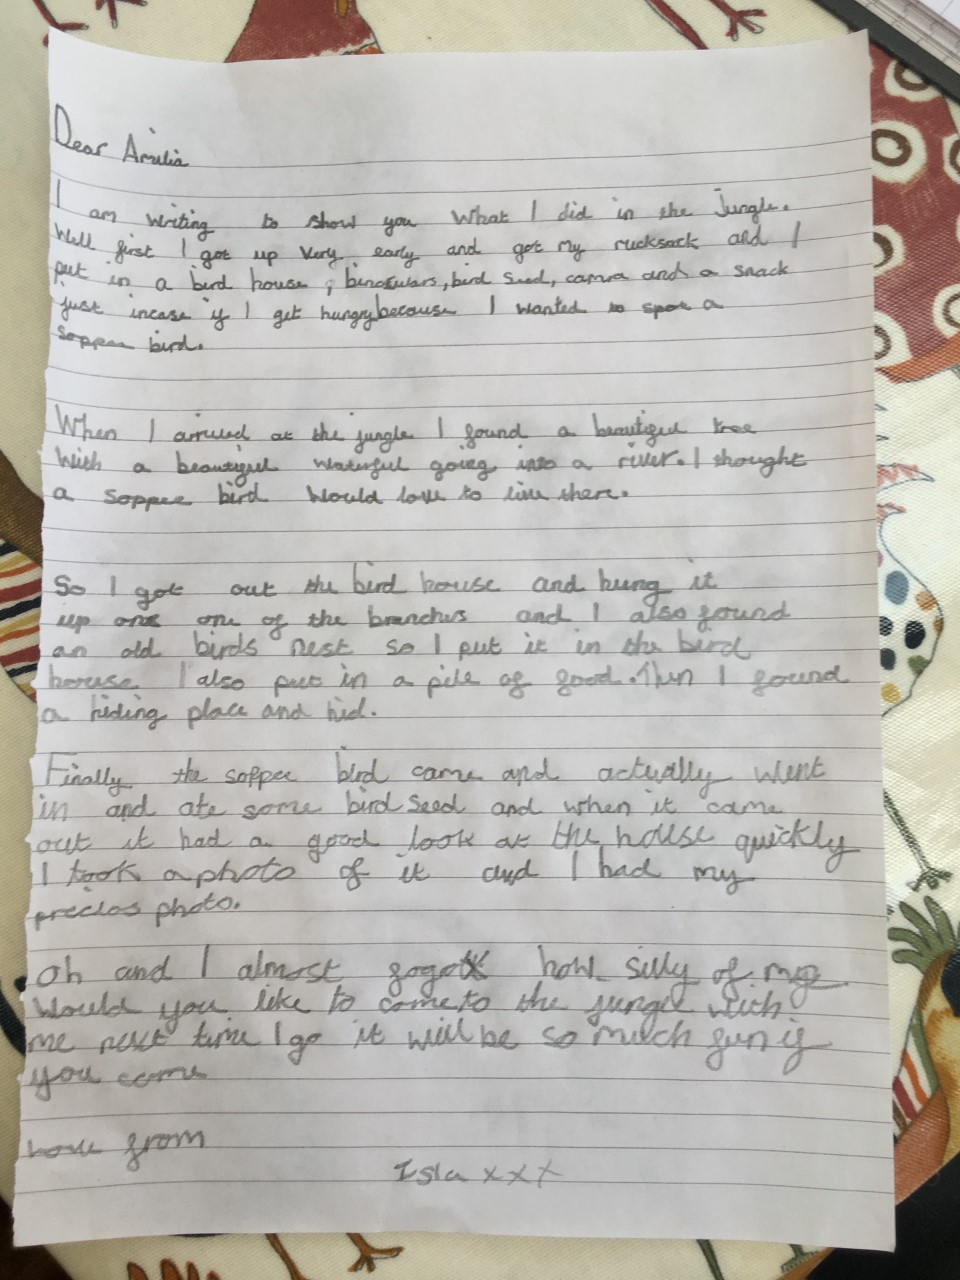 Dear Amilia
I am writing to show you What I did in the Jungle.
Well first I got up Very early and got my rucksack and I
put in a bird house, binoculars, bird seed, camra and a snack
just incase if I get hungry because I wanted to spot a
soppee bird.
When I arrived at the jungle I found a beautiful tree
With a beautiful waterful going into a river. I thought
a soppee bird Would love to live there.
So I got out the bird house and hung it
up one of the branches and I also found
an old birds nest so I put it in the bird
house I also put in a pile of food. Then I found
a hiding place and hid.
Finally the soppee bird came and actually went
in and ate some bird seed and when it came
out it had a good look at the house quickly
I took a photo of it and I had my
precios photo.
Oh and I almost how silly of me
Would you like to come to the jungle with
me next time I go it will be so much fun if
you come
Love from
Isla xxx